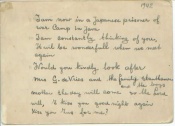 1945
I am now in a Japanese prisoner of
war Camp in Java
I am constantly thinking of you,
It will be wonderfull when we meet
again
Would you kindly look after
mrs G. de Vries and the family
and the boys
mother
will so the lord
will, I kiss you good night again
Kiss you this for me!